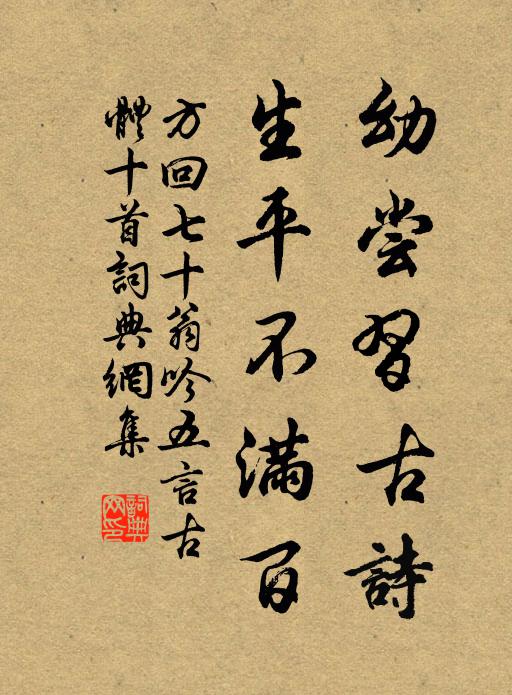 幼尝習古詩
生平不滿百
方回七十翁吟五言古
體十首詞典網集
詞典網印